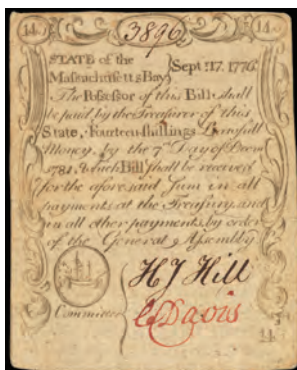 14 3896 14
STATE of the
Massachusetts Bay Sept. 17. 1776.
The Possessor of this Bill shall
be paid by the Treasurer of this
State, Fourteen shillings Lawfull
Money, by the 7th Day of Decem
1781. which Bill shall be received
for the aforesaid Sum in all
payments at the Treasury and
in all other payments by order
of the General Assembly
H J Hill
Committee
Davis
14